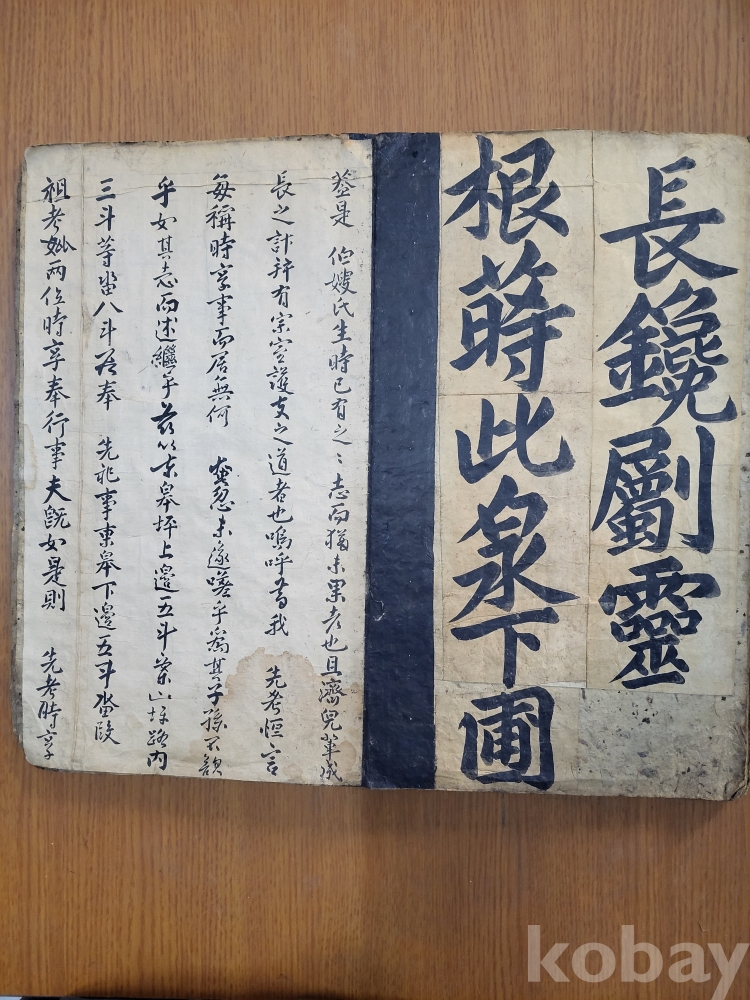 長鑱劚靈
根蒔此泉下圃
是 伯嫂氏生時已有之之志而猶未果者也且濟兒輩成
長之計幷有宗宅護支之道者也嗚呼 我 先考恒言
每稱時享事而居無何 奄忽未遂嗟乎爲其子孫不
乎如其志而述繼乎茲以東皐坪上邊五斗 山坪路內
三斗等畓八斗 奉 先 事東皐下邊五斗畓段
祖考妣兩位時享奉行事夫旣如是則 先考時享
kobay